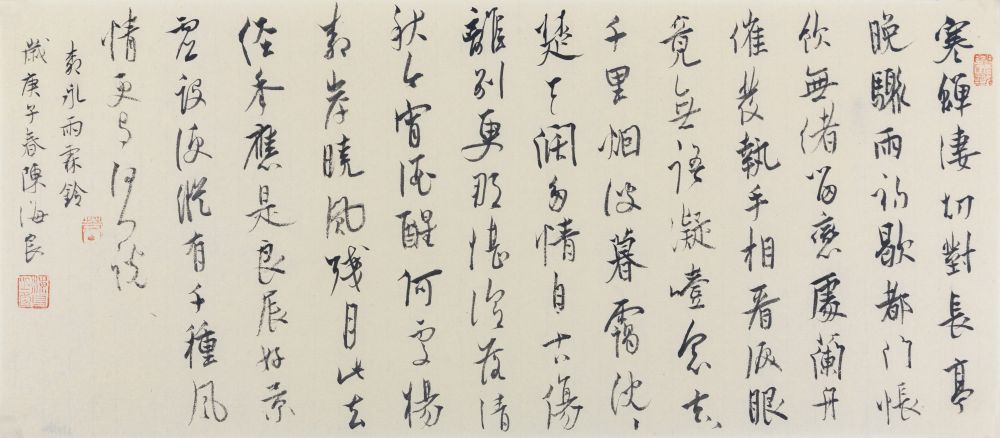 寒蟬凄切對長亭
晚驟雨初歇都門帳
飲無緒留戀處蘭舟
催發執手相看淚眼
竟無語凝噎念去々
千里烟波暮靄沈々
楚天闊多情自古傷
離別更那堪冷落清
秋今宵酒醒何處楊
柳岸曉風殘月此去
經年應是良辰好景
虛設便縱有千種風
情更與何人說
柳永雨霖鈴
歲庚子春陳海良